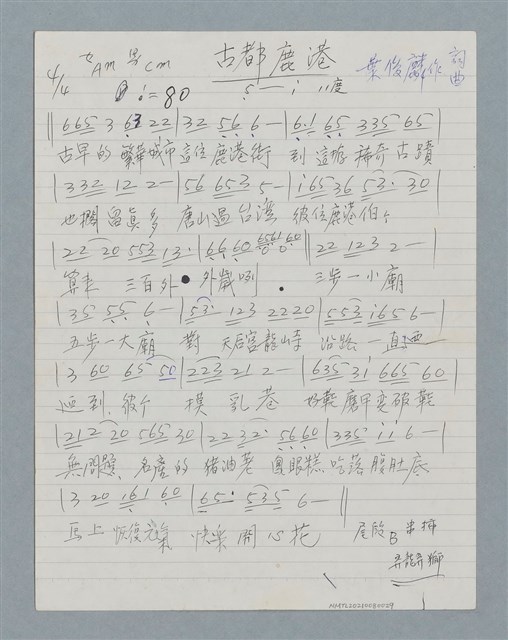 古都鹿港
4/4 女Am 男Cm
葉俊麟作 詞曲
♩=80 5 — i 11度
‖665 3 63 22|32 56 6 —|6·1 65 335 65|
古早的 繁華城市 這位鹿港街 到這 稀奇古蹟
|332 12 2 —|56 653 5 —|i65 36 53· 30|
也擱留真多 唐山過台灣 彼位鹿港伯仔
|22 20 553 13·|66 60 60‖22 123 2 —|
算來 三百外 外歲咧 三步一小廟
|35 55 6 —|53· 123 2220|553 i65 6 —|
五步一大廟 對 天后宮龍山寺 沿路一直
|3 60 65 50|223 21 2 —|635 31 665 60|
到 彼个 摸乳巷 好鞋磨甲變破鞋
|212 20 565 30|22 32· 56 60|335 i i 6 —|
無問題 名產的 豬油荖 鳳眼糕 吃落腹肚底
|3 20 161 60|65· 535 6 —‖
馬上 恢復元氣 快樂開心花
尾段B
弄龍弄獅
NMTL20210080029